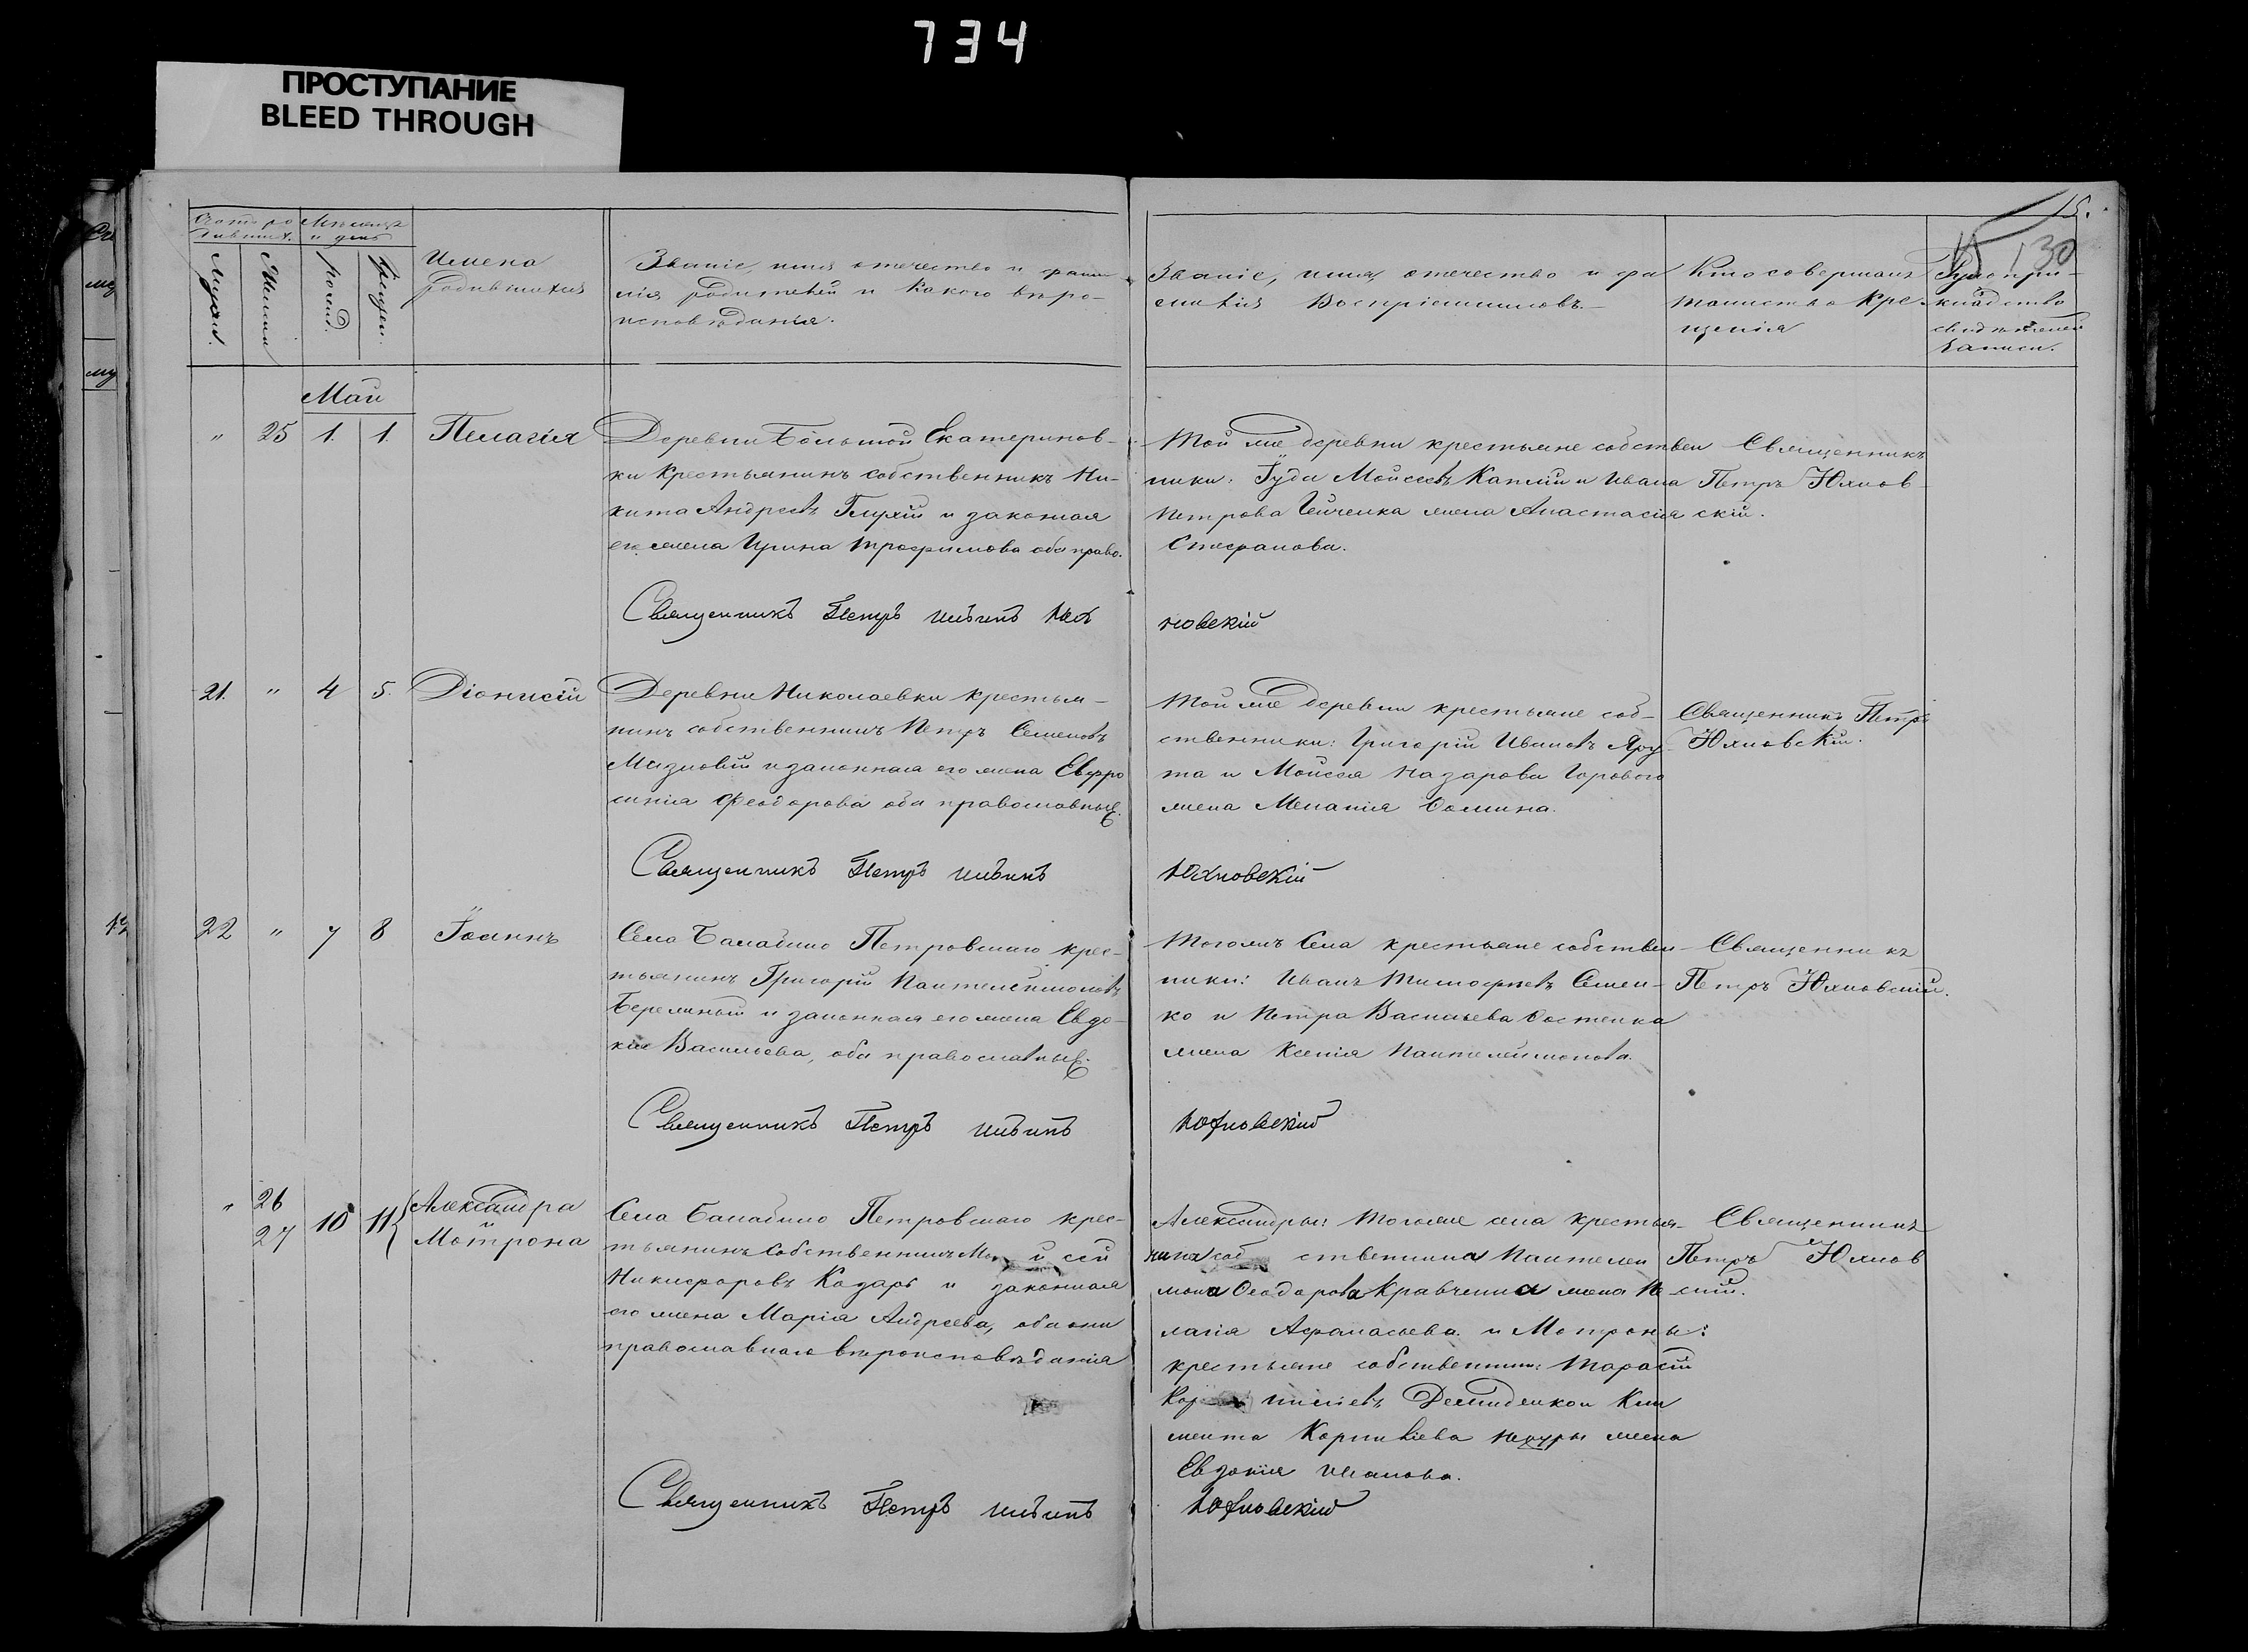 734
ПРОСТУПАНИЕ
BLEED THROUGH
15.
130
Счетъ ро
дившихъ.
Мѣсяцъ
и день
Мужск.
Женск.
рожд.
Крещен.
Имена
родившихся
Званіе, имя отечество и фами
лія родителей и какого вѣро-
исповѣданія.
Званіе, имя, отечество и фа
милія Воспріемниковъ.
Кто совершалъ
таинство Кре-
щенія
Рукопри-
кладство
свидѣтелей
записи.
Май
„ 25 1. 1. Пелагія
Деревни Большой Екатеринов-
ки Крестьянинъ собственникъ Ни-
кита Андреевъ Глухій и законная
его жена Ирина Трофимова оба право.
Той же деревни крестьяне собствен
ники: Іуда Мойсеевъ и Ивана
Петрова жена Анастасія
Стефанова.
Священникъ
Петръ Юхнов-
скій.
Священникъ Петръ Юх
новскій
21. „ 4 5. Діонисій
Деревни Николаевки Крестья-
нинъ собственникъ Петръ Семеновъ
и законная его жена Евфро
синія Феодорова оба православные.
Той же деревни крестьяне соб-
ственники: Григорій Ивановъ Яру-
та и Мойсея Назарова Горового
жена Меланія Фомина.
Священникъ Петръ
Юхновскій.
Священникъ Петръ
Юхновскій
22 „ 7 8 Іоаннъ
Села Балабино Петровскаго крес-
тьянинъ Григорій Пантелеимоновъ
Бережный и законная его жена Евдо-
кія Васильева, оба православные.
Тогожъ Села крестьяне собствен-
ники: Иванъ Тимофеевъ Семен-
ко и Петра Васильева Костенка
жена Ксенія Пантелеимонова.
Священникъ
Петръ Юхновскій.
Священникъ Петръ
Юхновскій
„ 26
27
10 11
Александра
Мотрона
Села Балабино Петровскаго крес-
тьянинъ Собственникъ Мо й сей
Никифоровъ Козарь и законная
его жена Марія Андреева, оба они
православнаго вѣроисповѣданія
Александры: Тогоже села крестья-
нина соб ственника Пантелеи
мона Феодорова Кравченка жена Пе
лагія Афанасьева. и Мотроны:
крестьяне собственники: Тарасій
Кор нилієвъ Демиденко и Кли
мента Корнилієва жена
Евдокія Иванова.
Священникъ
Петръ Юхнов
скій.
Священникъ Петръ
Юхновскій